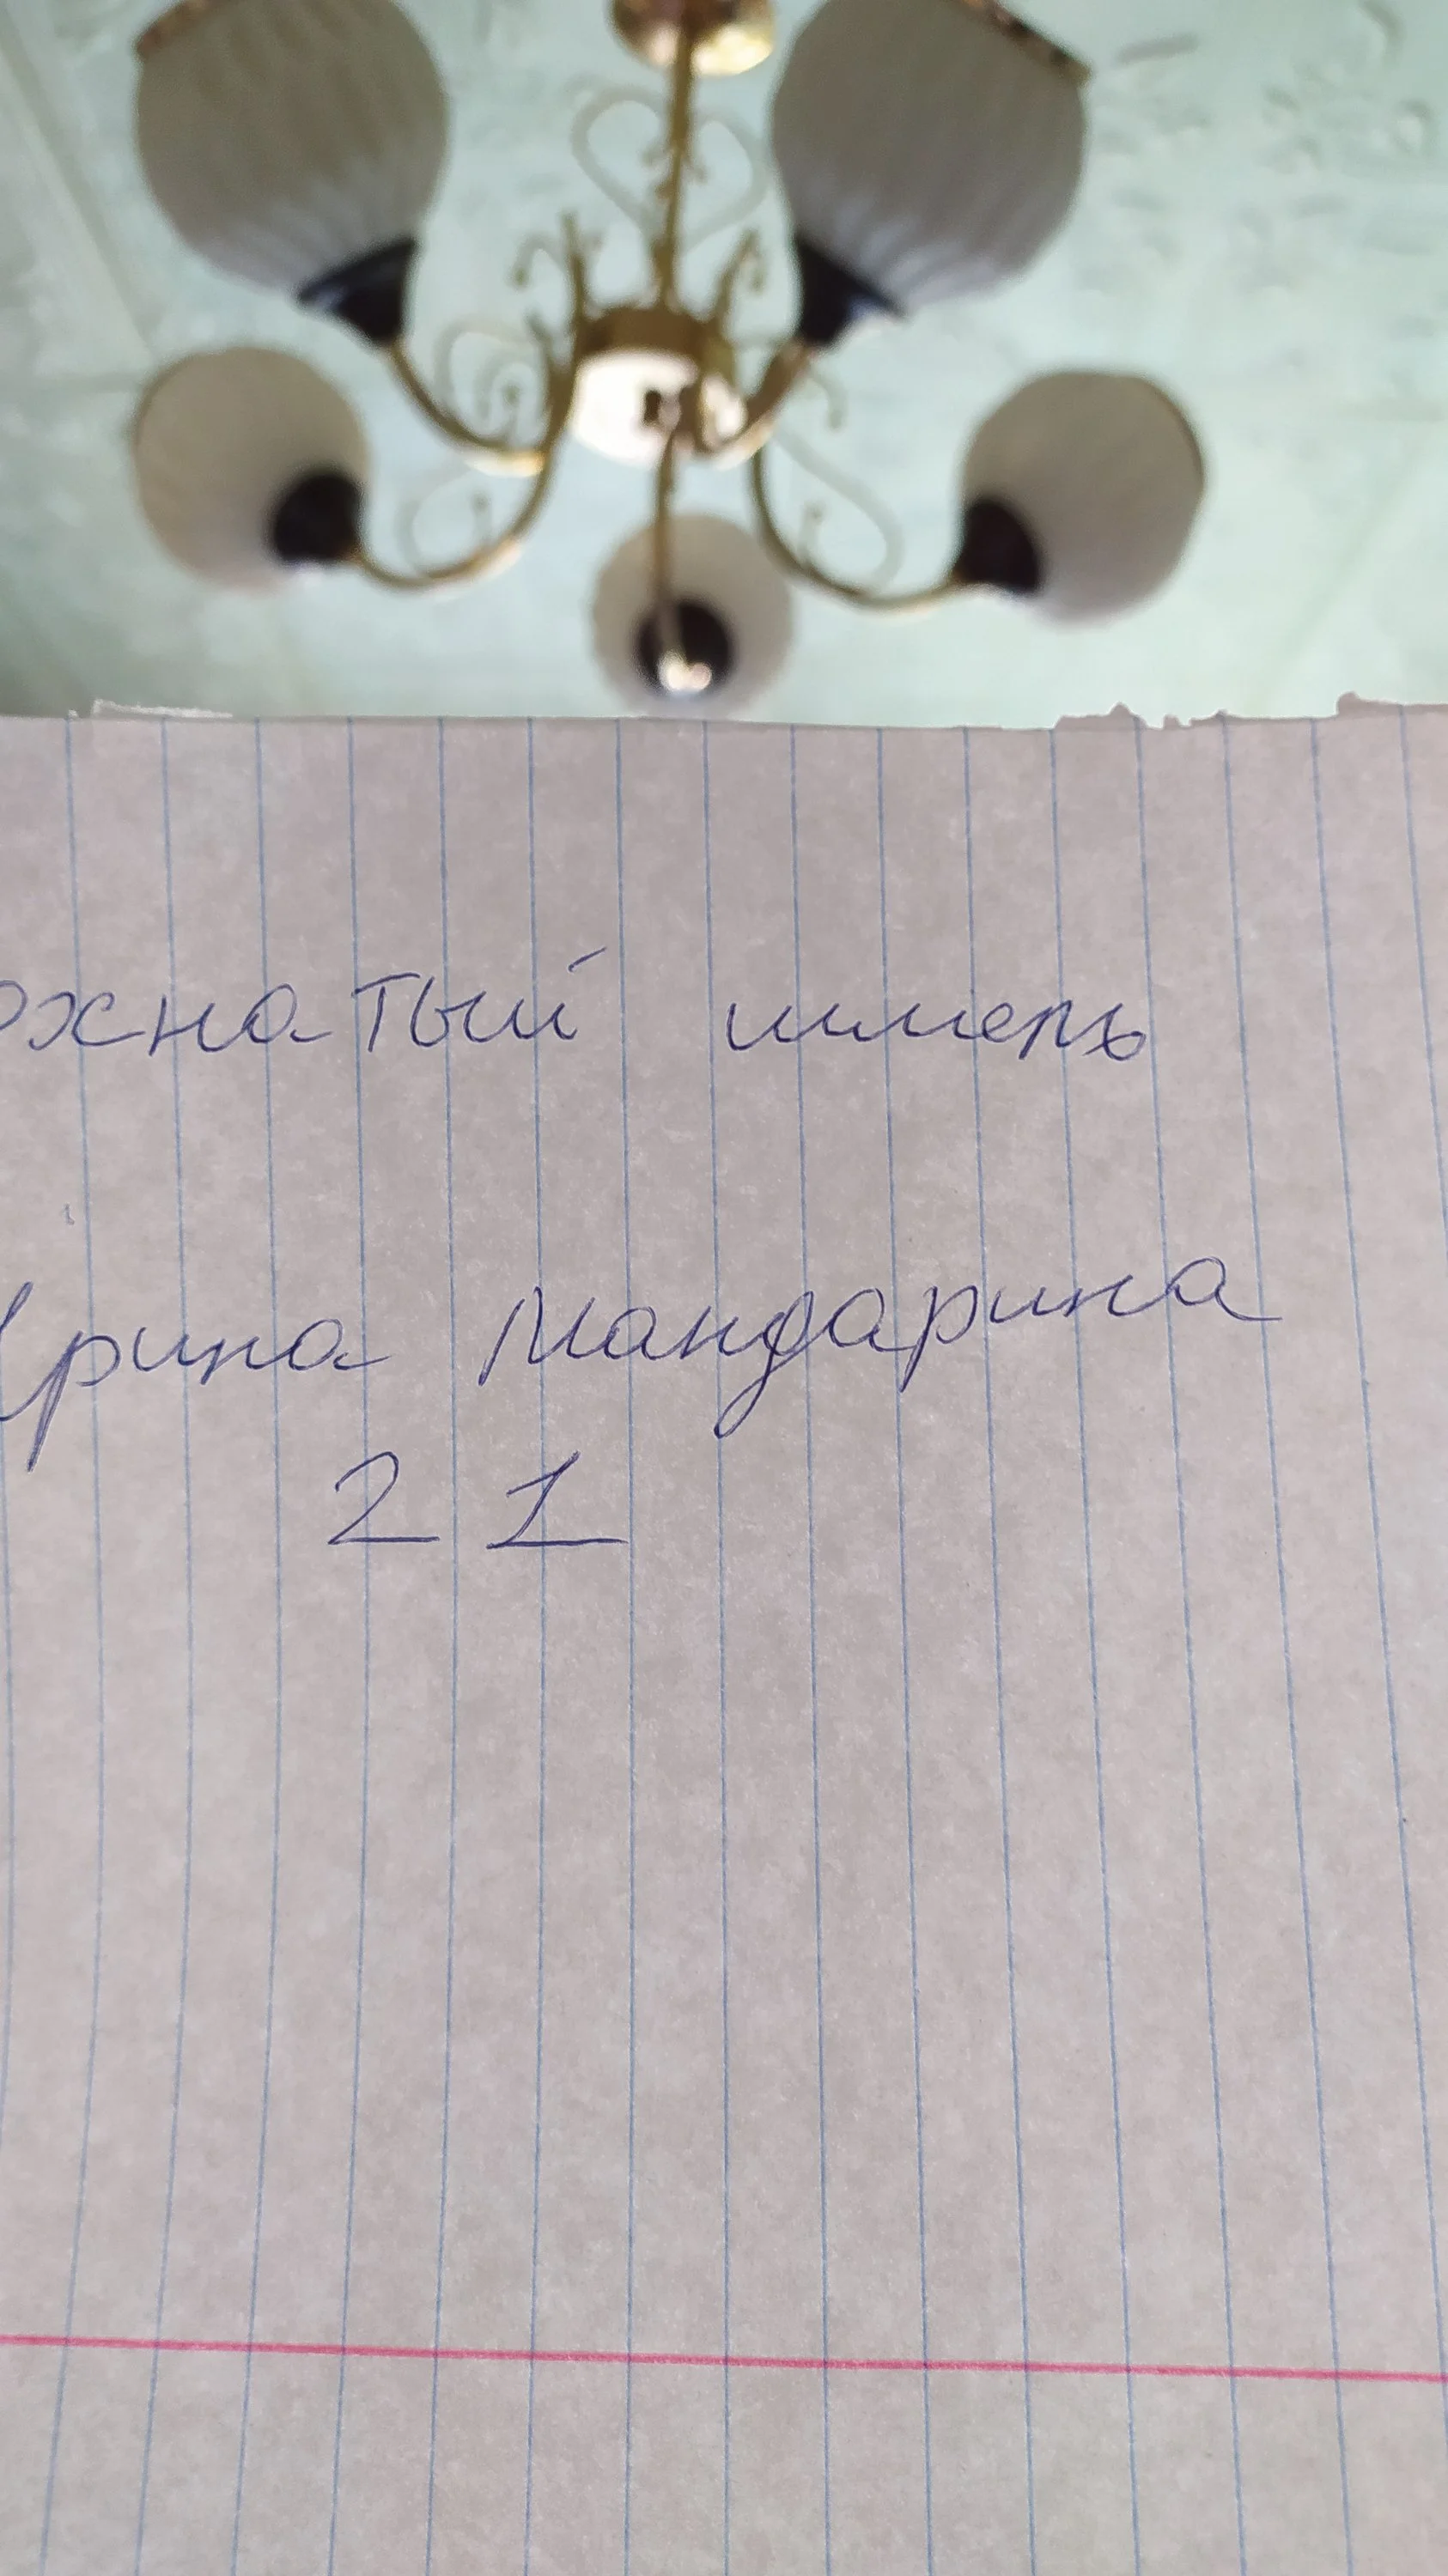 ожнатый шмель
Ирина Мандарина
21